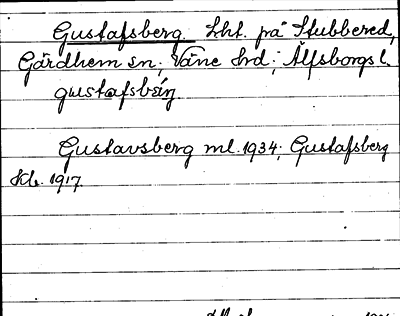 Gustafsberg Lht. på Stubbered,
Gärdhem sn; Väne hd; Älfsborgs l.
gustafsbärj
Gustavsberg ml. 1934; Gustafsberg
Kb. 1917